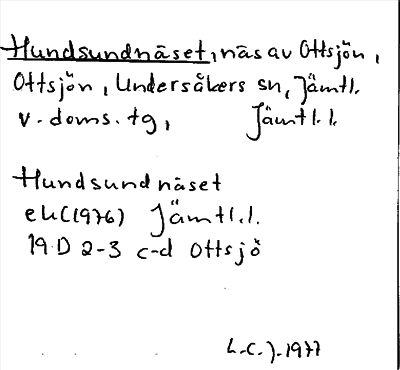 Hundsundnäset, näs av Ottsjön,
Ottsjön, Undersåkers sn, Jämtl.
v. doms. tg, Jämtl. l.
Hundsundnäset
ek (1976) Jämtl. l.
19 D 2-3 c-d Ottsjö
L.C.J. 1977